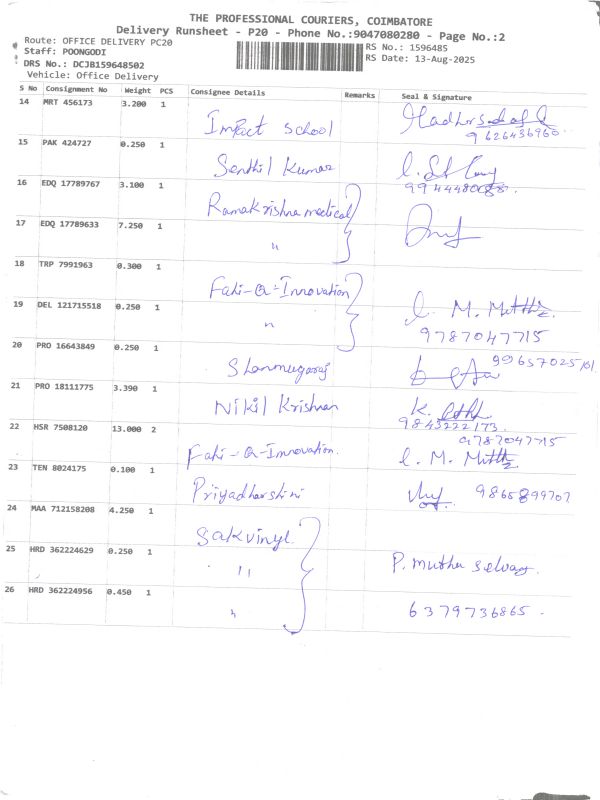 THE PROFESSIONAL COURIERS, COIMBATORE
Delivery Runsheet - P20 - Phone No.:9047080280 - Page No.:2
Route: OFFICE DELIVERY PC20
Staff: POONGODI
RS No.: 1596485
DRS No.: DCJB159648502
RS Date: 13-Aug-2025
Vehicle: Office Delivery
S No Consignment No Weight PCS Consignee Details Remarks Seal & Signature
14 MRT 456173 3.200 1 Impact school
9626436960
15 PAK 424727 0.250 1 Senthil Kumar
16 EDQ 17789767 3.100 1 Ramakrishna medical
17 EDQ 17789633 7.250 1 "
18 TRP 7991963 0.300 1 Fahi-a-Innovation
19 DEL 121715518 0.250 1 "
9787047715
20 PRO 16643849 0.250 1 Shanmugaraj
21 PRO 18111775 3.390 1 Nikil Krishnan K.
9843222173
22 HSR 7508120 13.000 2 Fahi-a-Innovation.
9787047715
23 TEN 8024175 0.100 1 Priyadharshini 9865899707
24 MAA 712158208 4.250 1 Sakvinyl
25 HRD 362224629 0.250 1 " P. muthu selvam.
26 HRD 362224956 0.450 1 " 6379736865.